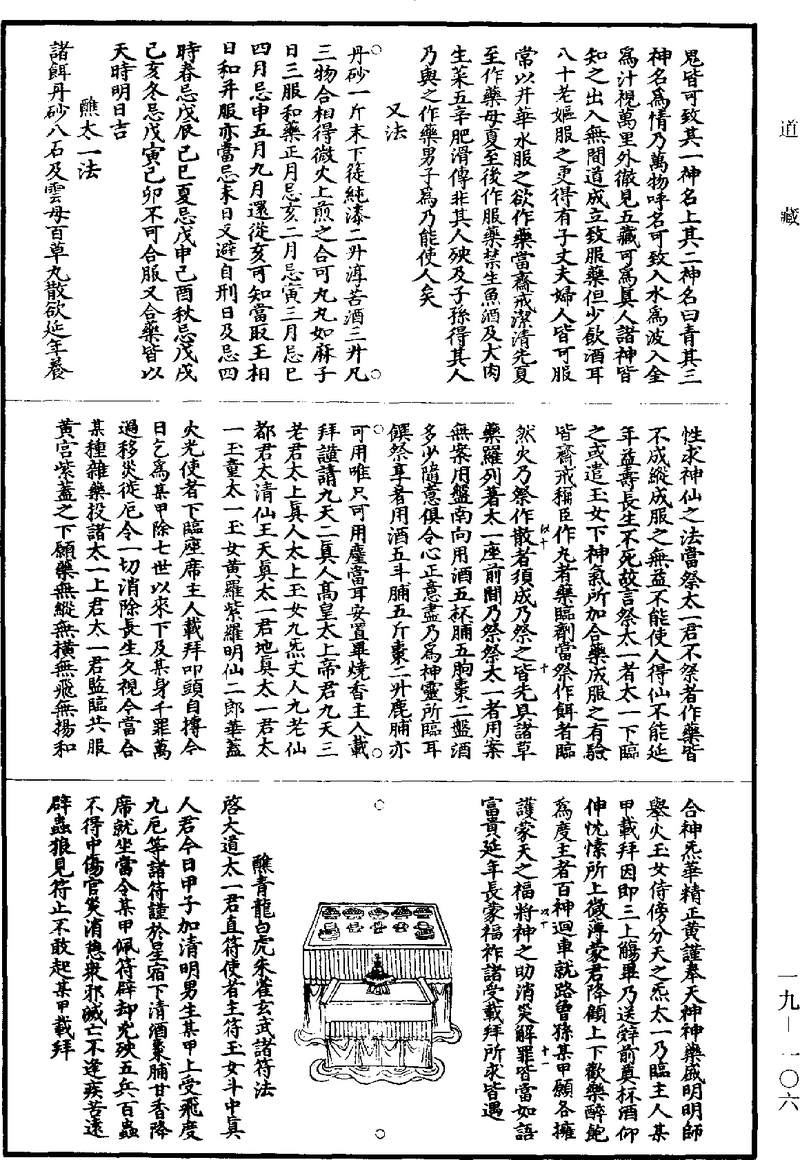 道藏
鬼皆可致其一神名上其二神名曰青其三
神名為情乃萬物呼名可致入水為波入金
為汁視萬里外徹見五藏可為真人諸神皆
知之出入無間道成立致服藥但少飲酒耳
八十老嫗服之更得有子丈夫婦人皆可服
常以井華水服之欲作藥當齋戒潔清先夏
至作藥母夏至後作服藥禁生魚酒及大肉
生菜五辛肥滑傳非其人殃及子孫得其人
乃與之作藥男子為乃能使人矣
又法
丹砂一斤末下篵純漆二升淳苦酒三升凡
三物合相得微火上煎之合可丸丸如麻子
日三服和藥正月忌亥二月忌寅三月忌巳
四月忌申五月九月還從亥可知當取王相
日和并服亦當忌未日又避自刑日及忌四
時春忌戊辰己巳夏忌戊申己酉秋忌戊戌
己亥冬忌戊寅己卯不可合服又合藥皆以
天時明日吉
醮太一法
諸餌丹砂八石及雲母百草丸散欲延年養
性求神仙之法當祭太一君不祭者作藥皆
不成縱成服之無益不能使人得仙不能延
年益壽長生不死故言祭太一者太一下臨
之或遣玉女下神氣所加合藥成服之有驗
皆齋戒稱臣作丸者藥臨劑當祭作餌者臨
然火乃祭作散者須成乃祭之皆先具諸草
藥羅列著太一座前開乃祭祭太一者用案
無案用盤南向用酒五杯脯五朐棗二盤酒
多少隨意俱令心正意盡乃為神靈所臨耳
饌祭享者用酒五斗脯五斤棗二升鹿脯亦
可用唯只可用麈當耳安置畢燒香主人載
拜謹請九天二真人高皇太上帝君九天三
老君太上真人太上玉女九炁丈人九老仙
都君太清仙王天真太一君地真太一君太
一玉童太一玉女黃羅紫羅明仙二郎華蓋
火光使者下臨座席主人載拜叩頭自搏令
日乞為某甲除七世以來下及某身千罪萬
過移災徙厄令一切消除長生久視今當合
某種雜藥投諸太一上君太一君監臨共服
黃宮紫蓋之下願藥無縱無橫無飛無揚和
合神炁華精正黃謹奉天神神藥盛明明師
舉火玉女侍傍分天之炁太一乃臨主人某
甲載拜因即三上觴畢乃送辭前奠杯酒仰
伸忱愫所上微薄蒙君降顧上下歡樂醉飽
為度王者百神迴車就路曾孫某甲願各擁
護蒙天之福將神之助消災解罪皆當如語
富貴延年長蒙福祚諸受載拜所求皆遇
醮青龍白虎朱雀玄武諸符法
啓大道太一君直符使者主符玉女斗中真
人君今日甲子加清明男生某甲上受飛度
九厄等諸符謹於星宿下清酒棗脯甘香降
席就坐當令某甲佩符辟却兇殃五兵百蟲
不得中傷官災消息衆邪滅亡不逢疾苦遠
辟蟲狼見符止不敢起某甲載拜
一九—一〇六